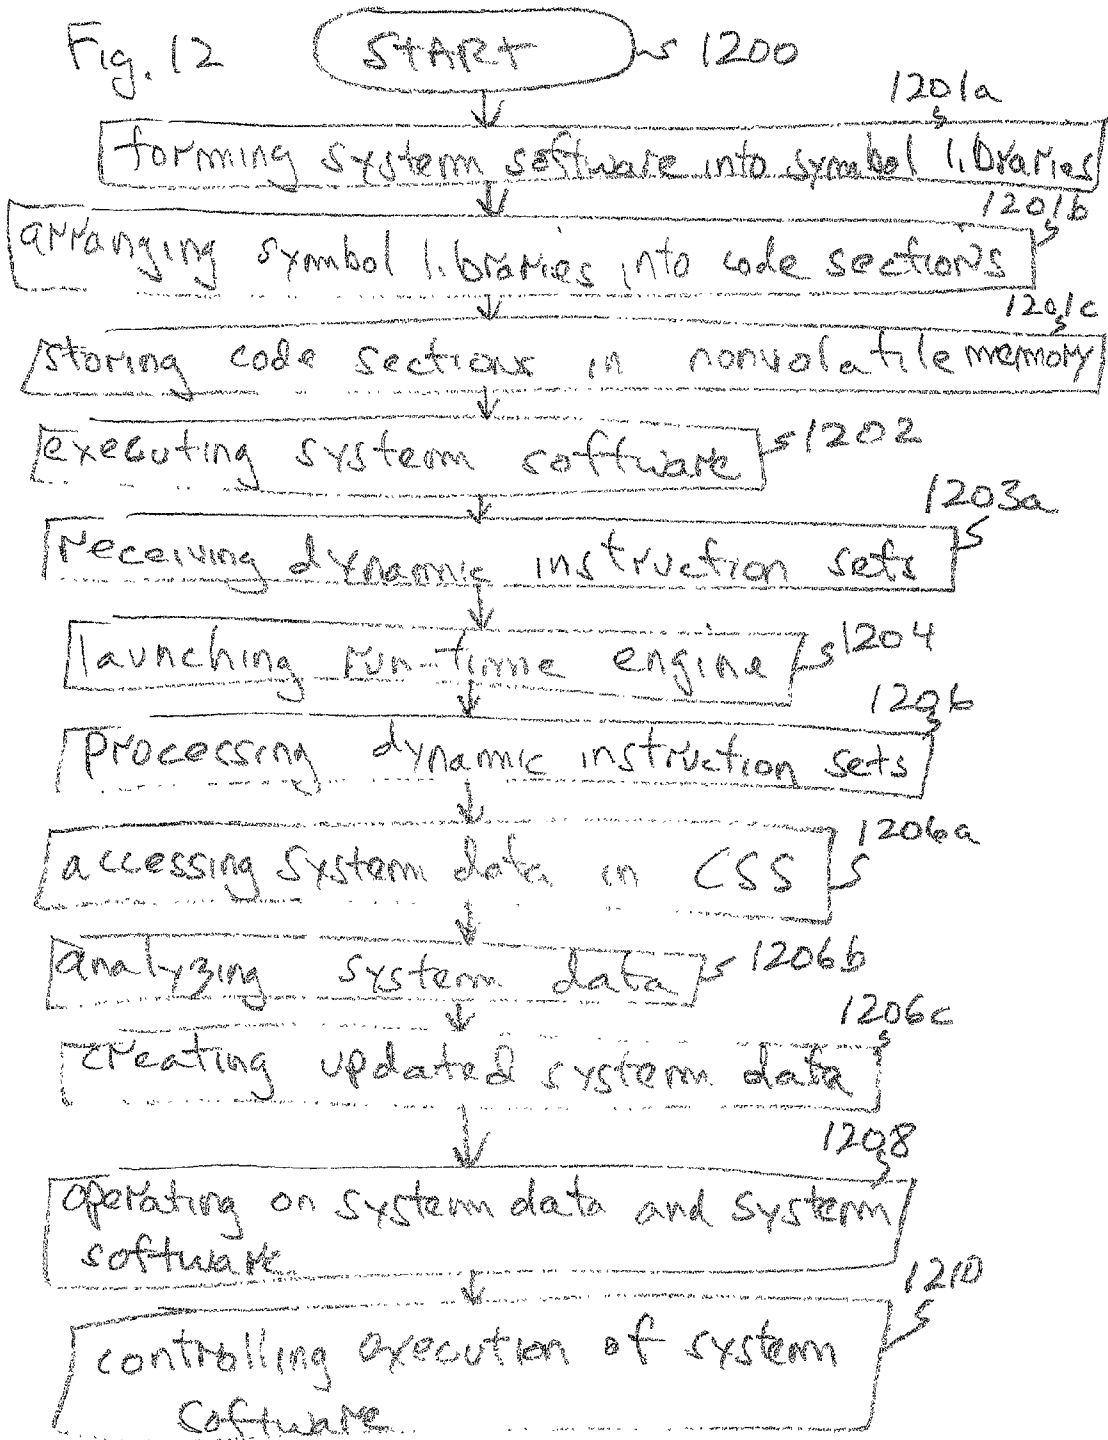 Fig. 12 START 1200
1201a
forming system software into symbol libraries
1201b
arranging symbol libraries into code sections
1201c
storing code sections in nonvolatile memory
executing system software 1202
1203a
receiving dynamic instruction sets
launching run-time engine 1204
1206
processing dynamic instruction sets
1206a
accessing system data in CSS
analyzing system data 1206b
1206c
creating updated system data
1208
operating on system data and system
software
1210
controlling execution of system
software